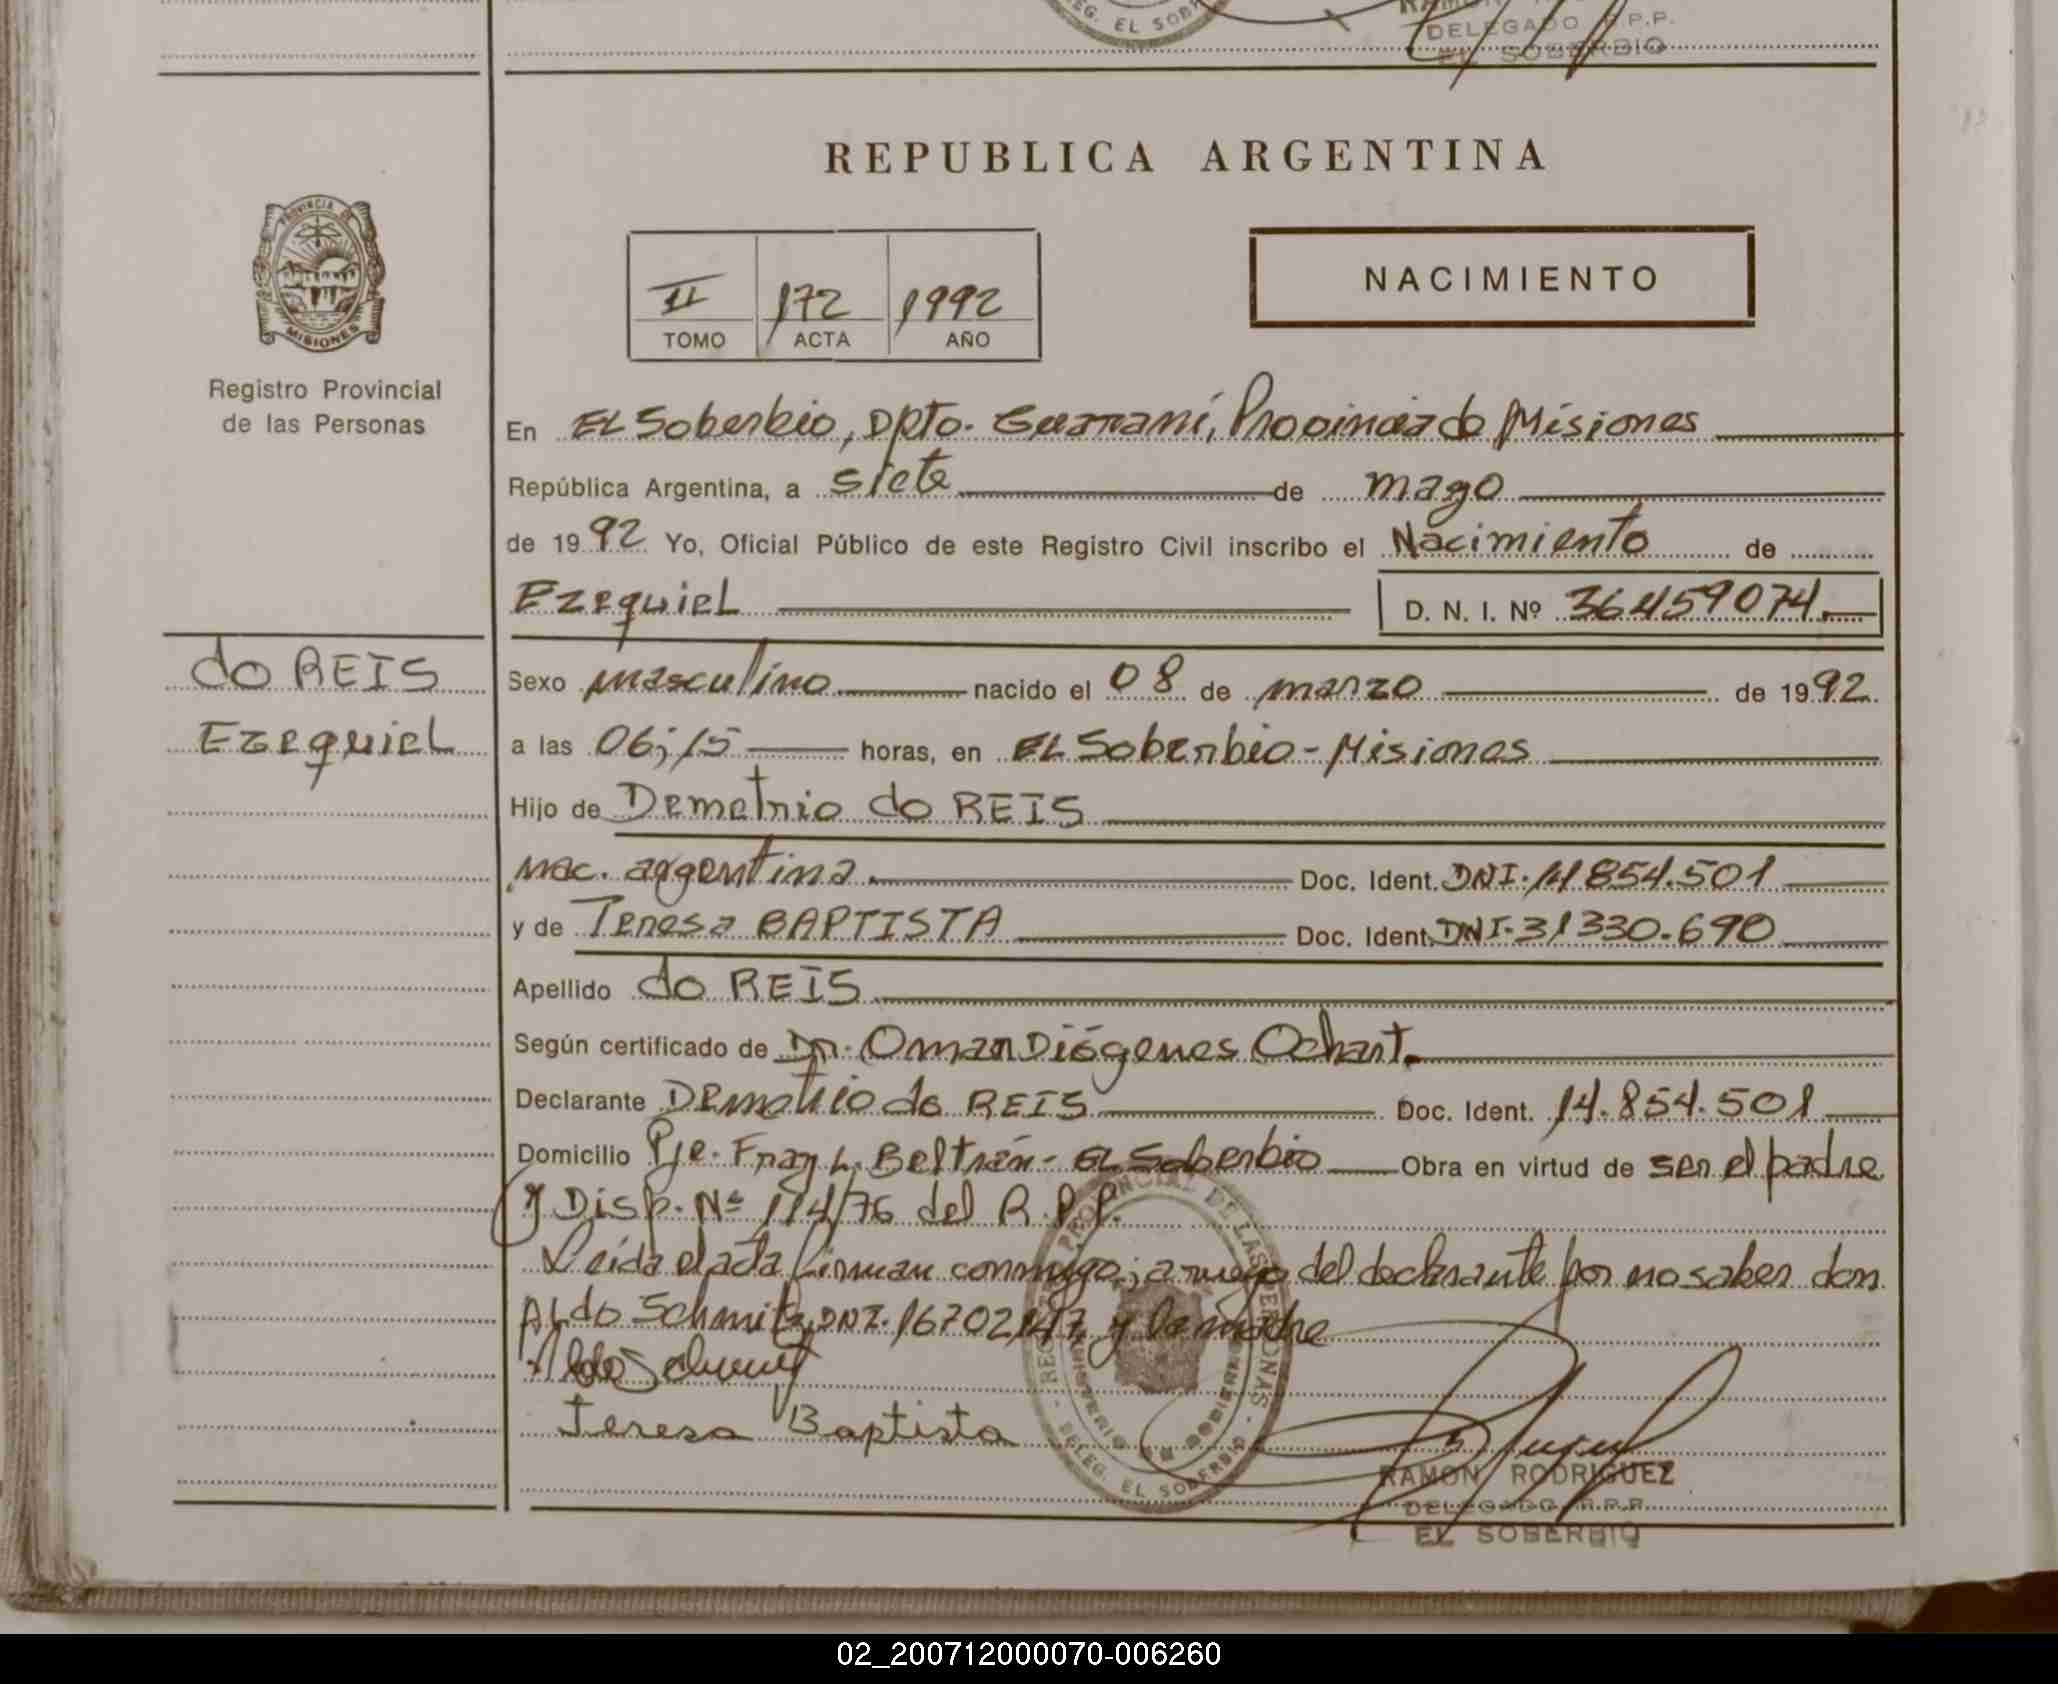 DELEG. EL SOBERBIO
DELEGADO R.P.P.
EL SOBERBIO
REPUBLICA ARGENTINA
PROVINCIA DE
MISIONES
Registro Provincial
de las Personas
II 172 1992
TOMO ACTA AÑO
NACIMIENTO
En EL Soberbio, Dpto. Guaraní, Provincia de Misiones
República Argentina, a siete de mayo
de 1992 Yo, Oficial Público de este Registro Civil inscribo el Nacimiento de
Ezequiel D. N. I. Nº 36459074.
do REIS
Ezequiel
Sexo masculino nacido el 08 de marzo de 1992.
a las 06;15 horas, en EL Soberbio - Misiones
Hijo de Demetrio do REIS
nac. argentina. Doc. Ident. DNI. 14 854.501
y de Teresa BAPTISTA Doc. Ident. DNI. 31330.690
Apellido do REIS
Según certificado de Dr. Omar Diógenes Ochart.
Declarante Demetrio do REIS Doc. Ident. 14.854.501
Domicilio Pje. Fray L. Beltrán - EL Soberbio Obra en virtud de ser el padre
y Disp. Nº 114/76 del R.P.P.
Leida el acta firman conmigo; a ruego del declarante por no saber don
Aldo Schmitz DNI. 16702147 y la madre
Aldo Schmitz
Teresa Baptista
REGISTRO PROVINCIAL DE LAS PERSONAS
MINISTERIO DE GOBIERNO
DELEG. EL SOBERBIO
RAMON RODRIGUEZ
DELEGADO R.P.P.
EL SOBERBIO
02_200712000070-006260